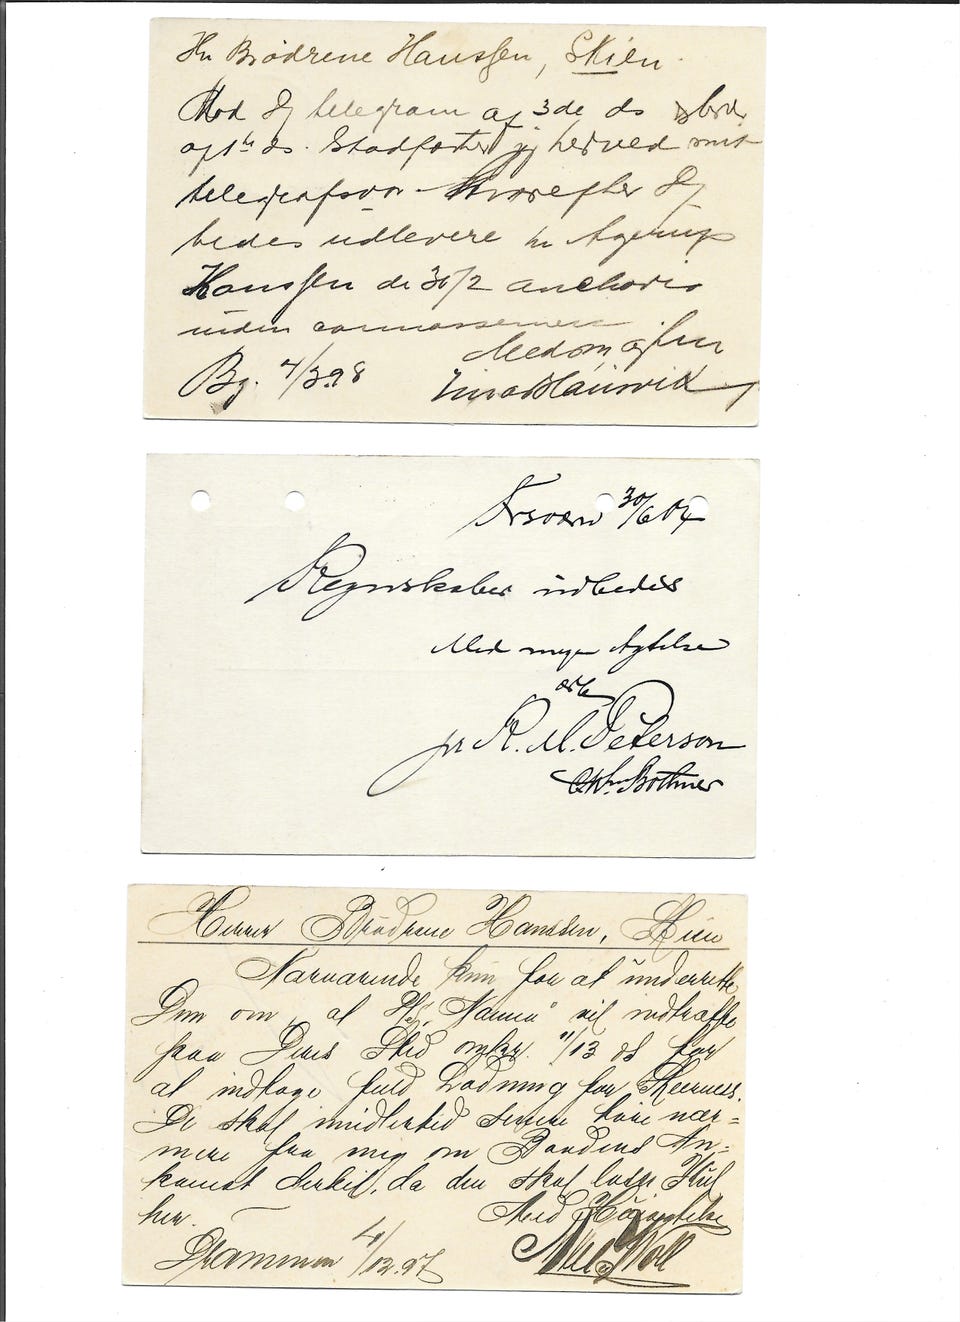 Hr Brödrene Hanssen, Skien.
Mod Dj telegram af 3de ds
af 4h ds. Stadfæster jeg herved mit
telegrafsvar hvorefter Dj
bedes udlevere hr Agerup
Hanssen de 30/2 anchovis
uden connossement
Bg. 4/3.98
30/6 04
Regnskaber udbedes
Med megen Agtelse
pr R. M. Peterson
Bothner
Herrer Brödrene Hanssen, Skien
Nærværende kun for at underrette
Dem om, at "Nanna" vil indtræffe
paa Deres Sted omkr. 11/13 ds for
at indtage fuld Ladning for Sheerness.
De skal imidlertid senere höre nær=
mere fra mig om Baadens An=
komst dertil, da den skal losse Kul
her. Med Höiagtelse
Drammen 4/12.97